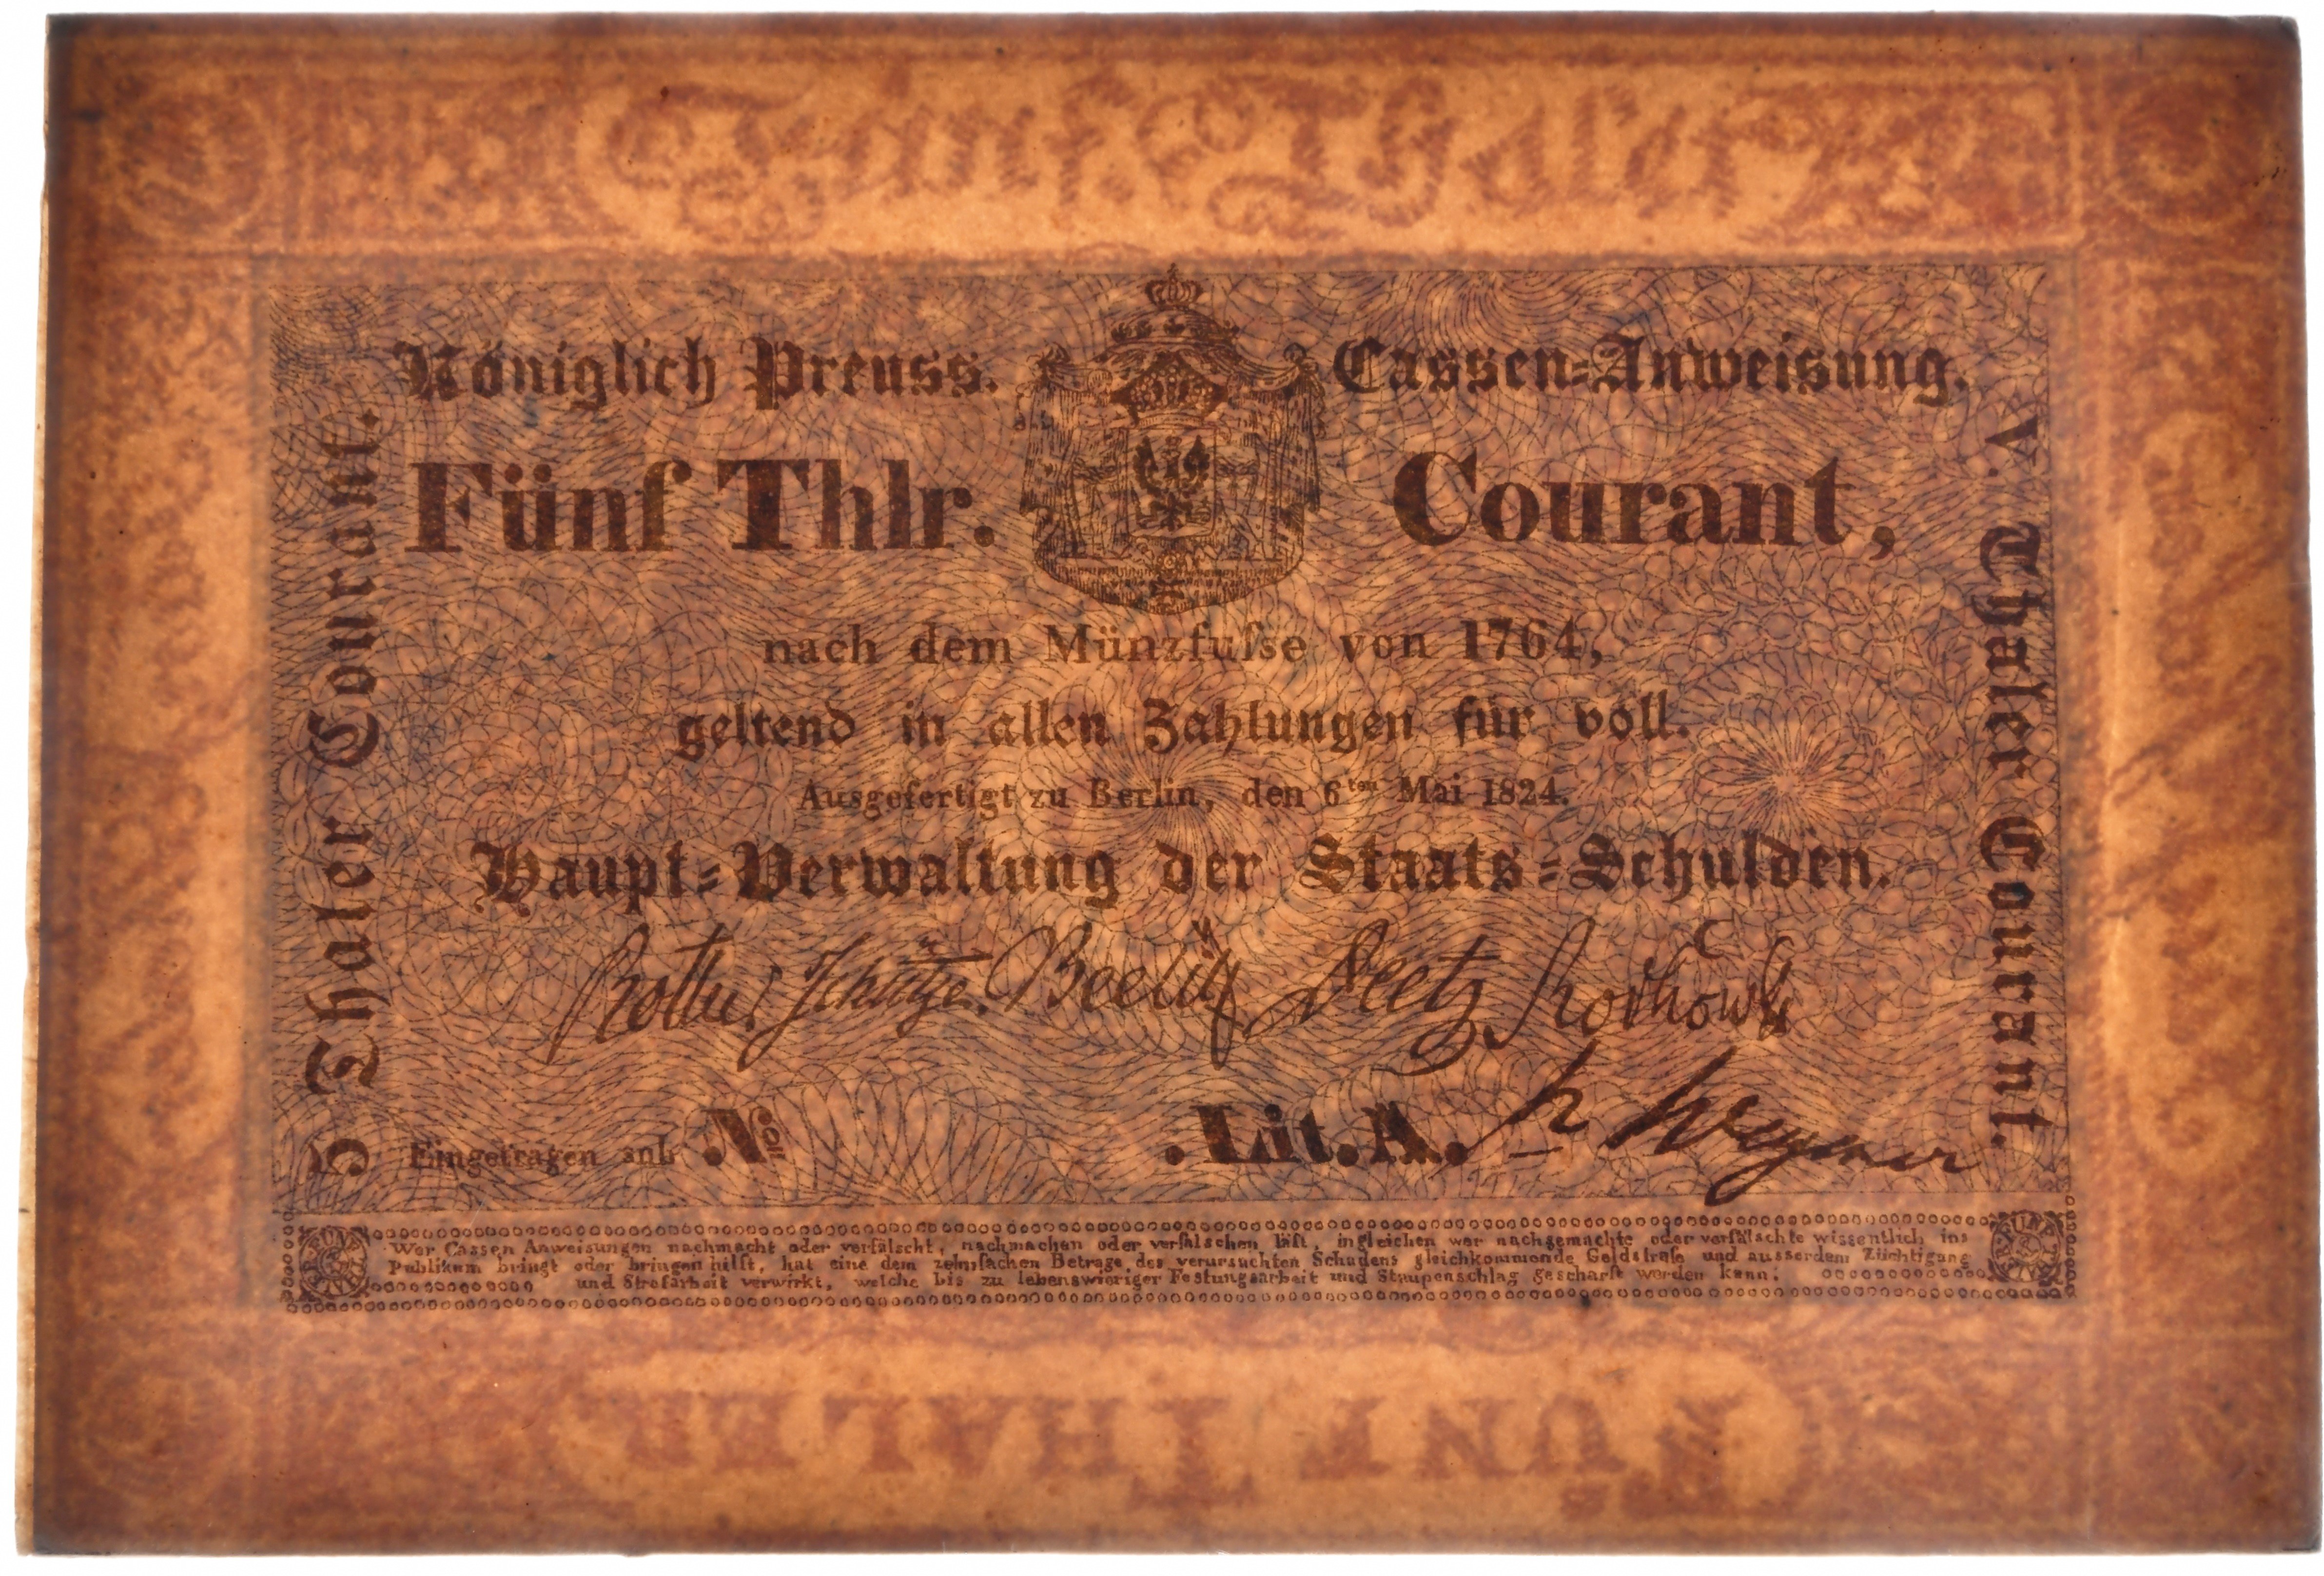 Königlich Preuss. Cassen=Anweisung.
Fünf Thlr. Courant,
nach dem Münzfuſse von 1764,
geltend in allen Zahlungen für voll.
Ausgefertigt zu Berlin, den 6ten Mai 1824.
Haupt=Verwaltung der Staats=Schulden.
Rother. Schütze. Beelitz Deetz Rochow
Eingetragen sub No .Lit.A.
5 Thaler Courant.
V. Thaler Courant.
Wer Cassen Anweisungen nachmacht oder verfälscht, nachmachen oder verfälschen läſt, ingleichen wer nachgemachte oder verfälschte wissentlich ins
Publikum bringt oder bringen hilft, hat eine dem zehnfachen Betrage des verursachten Schadens gleichkommende Geldstrafe und ausserdem Züchtigung
und Strafarbeit verwirkt, welche bis zu lebenswieriger Festungsarbeit und Staupenschlag geschärft werden kann.
FÜNF THALER